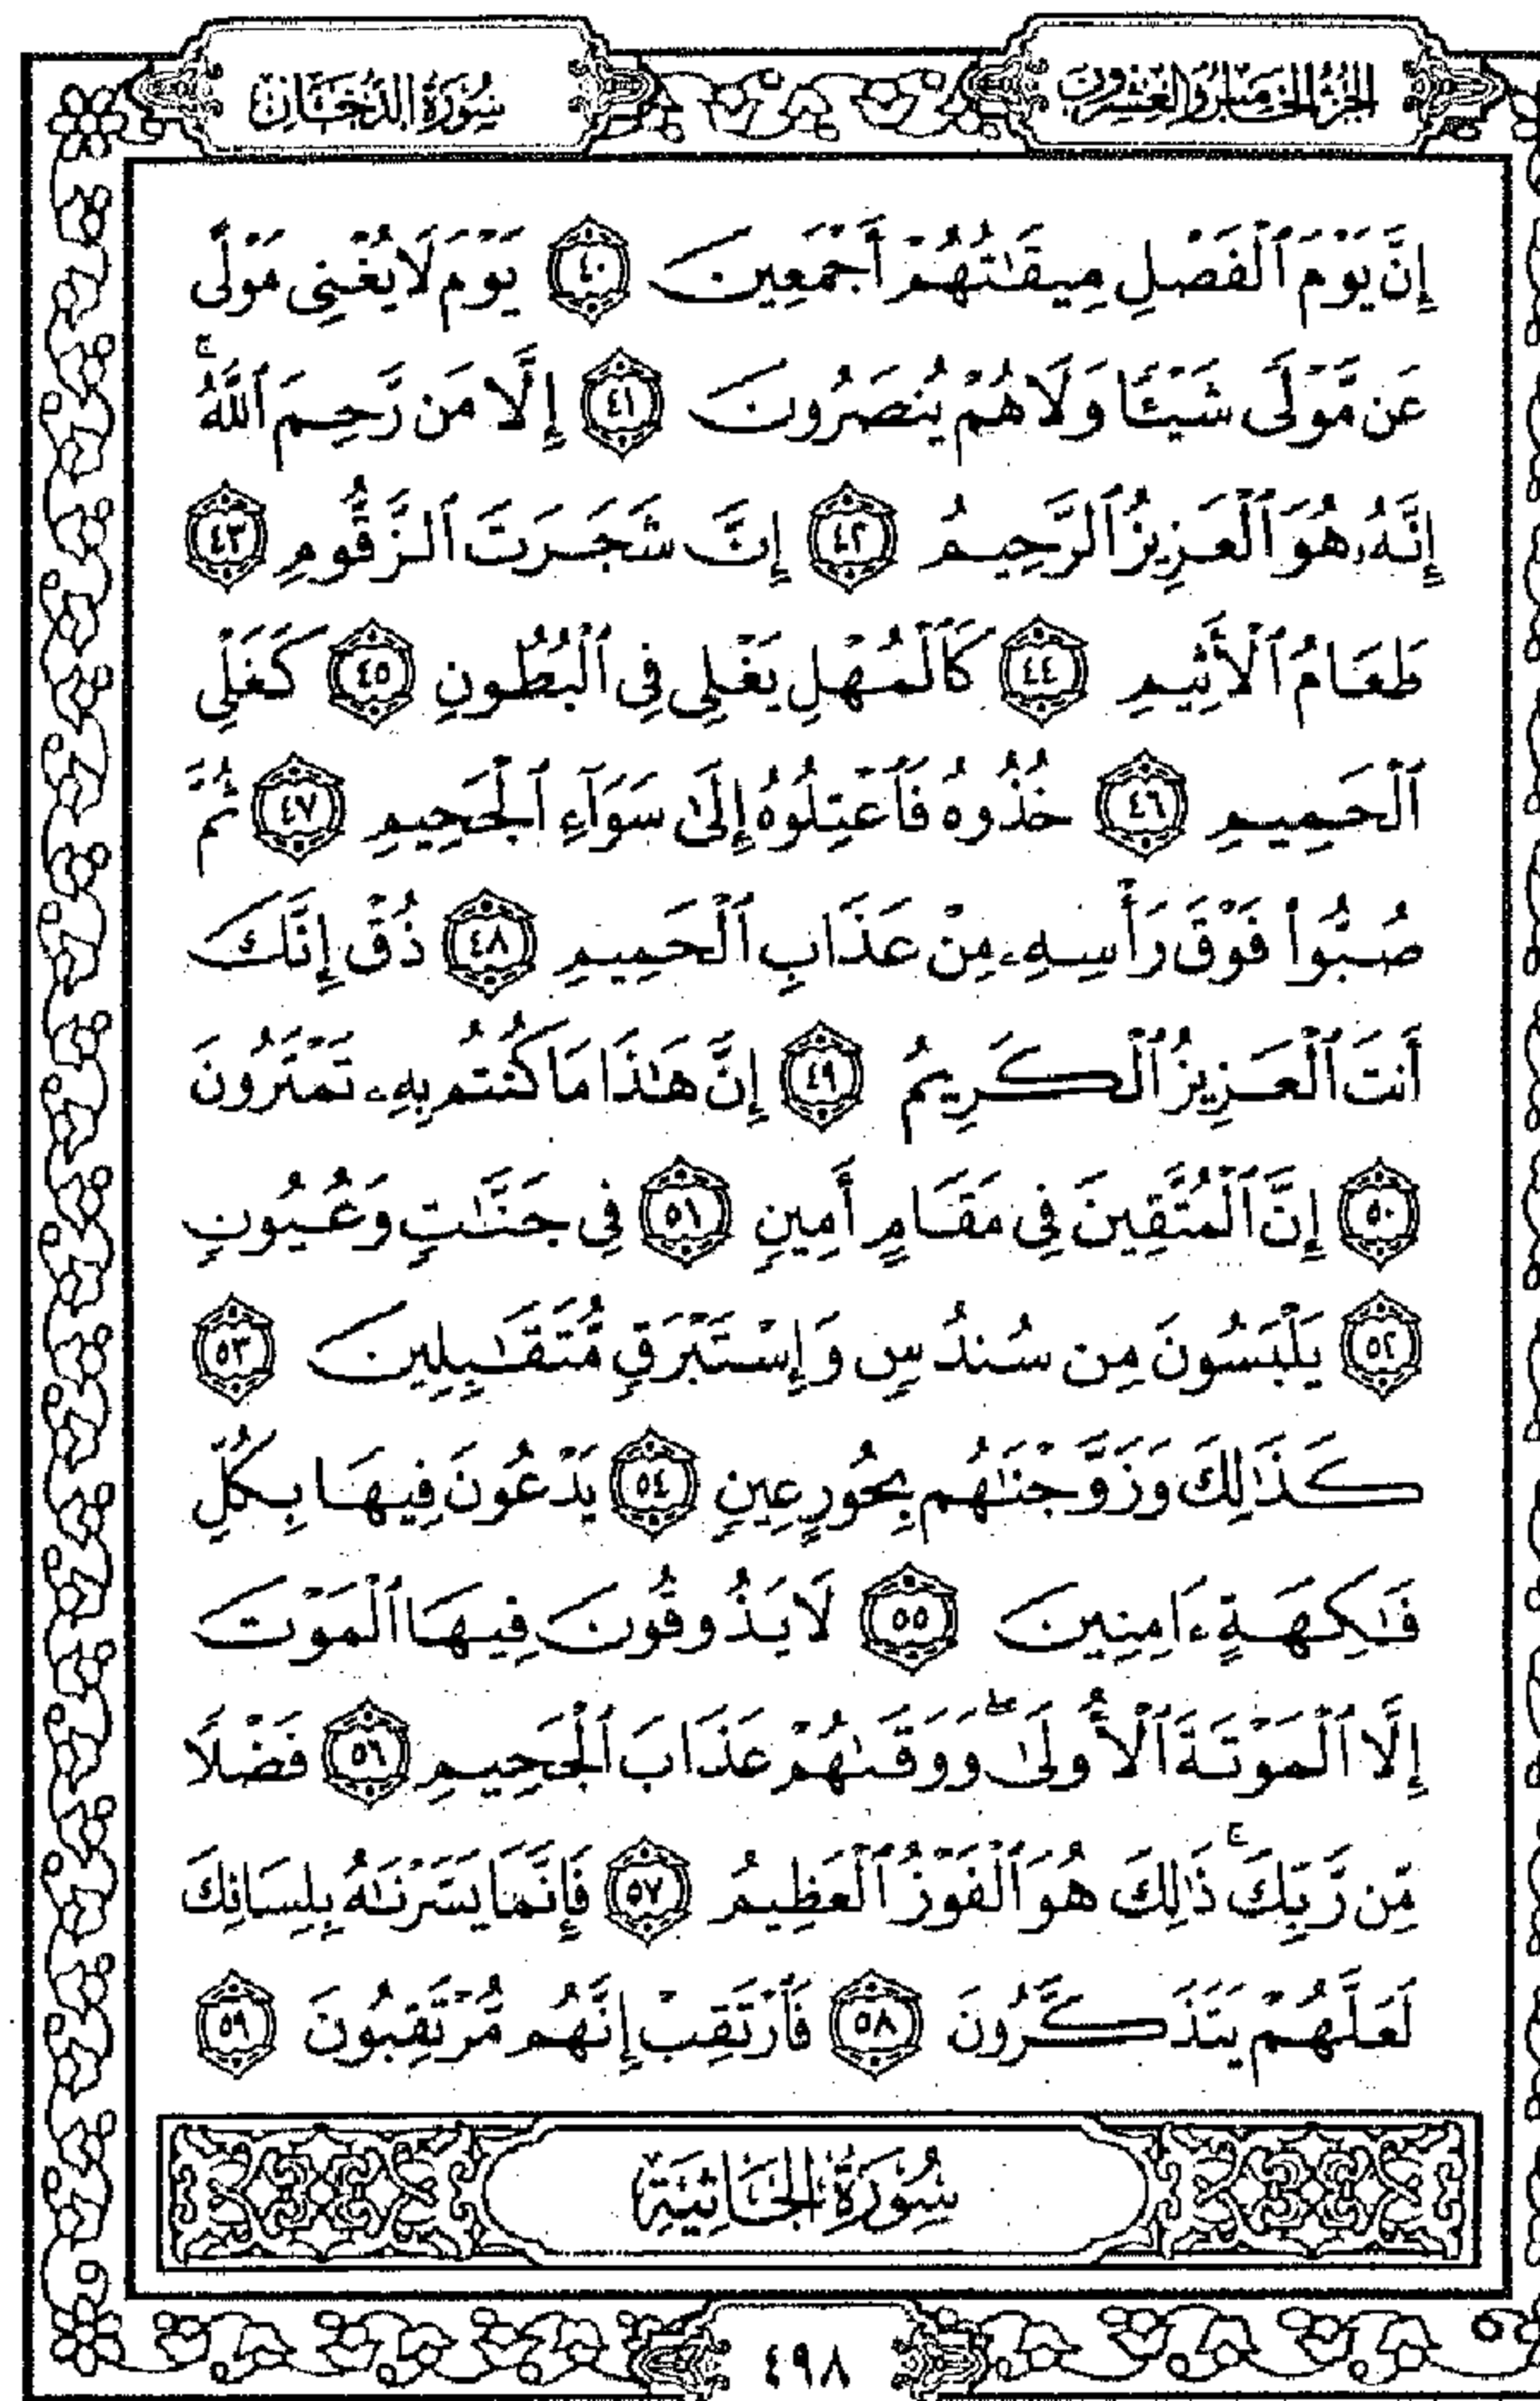 الجزء الخامس والعشرون
سورة الدخان
إِنَّ يَوْمَ ٱلْفَصْلِ مِيقَـٰتُهُمْ أَجْمَعِينَ ٤٠ يَوْمَ لَا يُغْنِى مَوْلًى
عَن مَّوْلًى شَيْـًٔا وَلَا هُمْ يُنصَرُونَ ٤١ إِلَّا مَن رَّحِمَ ٱللَّهُ ۚ
إِنَّهُۥ هُوَ ٱلْعَزِيزُ ٱلرَّحِيمُ ٤٢ إِنَّ شَجَرَتَ ٱلزَّقُّومِ ٤٣
طَعَامُ ٱلْأَثِيمِ ٤٤ كَٱلْمُهْلِ يَغْلِى فِى ٱلْبُطُونِ ٤٥ كَغَلْىِ
ٱلْحَمِيمِ ٤٦ خُذُوهُ فَٱعْتِلُوهُ إِلَىٰ سَوَآءِ ٱلْجَحِيمِ ٤٧ ثُمَّ
صُبُّوا۟ فَوْقَ رَأْسِهِۦ مِنْ عَذَابِ ٱلْحَمِيمِ ٤٨ ذُقْ إِنَّكَ
أَنتَ ٱلْعَزِيزُ ٱلْكَرِيمُ ٤٩ إِنَّ هَـٰذَا مَا كُنتُم بِهِۦ تَمْتَرُونَ
٥٠ إِنَّ ٱلْمُتَّقِينَ فِى مَقَامٍ أَمِينٍ ٥١ فِى جَنَّـٰتٍ وَعُيُونٍ
٥٢ يَلْبَسُونَ مِن سُندُسٍ وَإِسْتَبْرَقٍ مُّتَقَـٰبِلِينَ ٥٣
كَذَٰلِكَ وَزَوَّجْنَـٰهُم بِحُورٍ عِينٍ ٥٤ يَدْعُونَ فِيهَا بِكُلِّ
فَـٰكِهَةٍ ءَامِنِينَ ٥٥ لَا يَذُوقُونَ فِيهَا ٱلْمَوْتَ
إِلَّا ٱلْمَوْتَةَ ٱلْأُولَىٰ ۖ وَوَقَىٰهُمْ عَذَابَ ٱلْجَحِيمِ ٥٦ فَضْلًا
مِّن رَّبِّكَ ۚ ذَٰلِكَ هُوَ ٱلْفَوْزُ ٱلْعَظِيمُ ٥٧ فَإِنَّمَا يَسَّرْنَـٰهُ بِلِسَانِكَ
لَعَلَّهُمْ يَتَذَكَّرُونَ ٥٨ فَٱرْتَقِبْ إِنَّهُم مُّرْتَقِبُونَ ٥٩
سُورَةُ الجَاثِيَةِ
٤٩٨